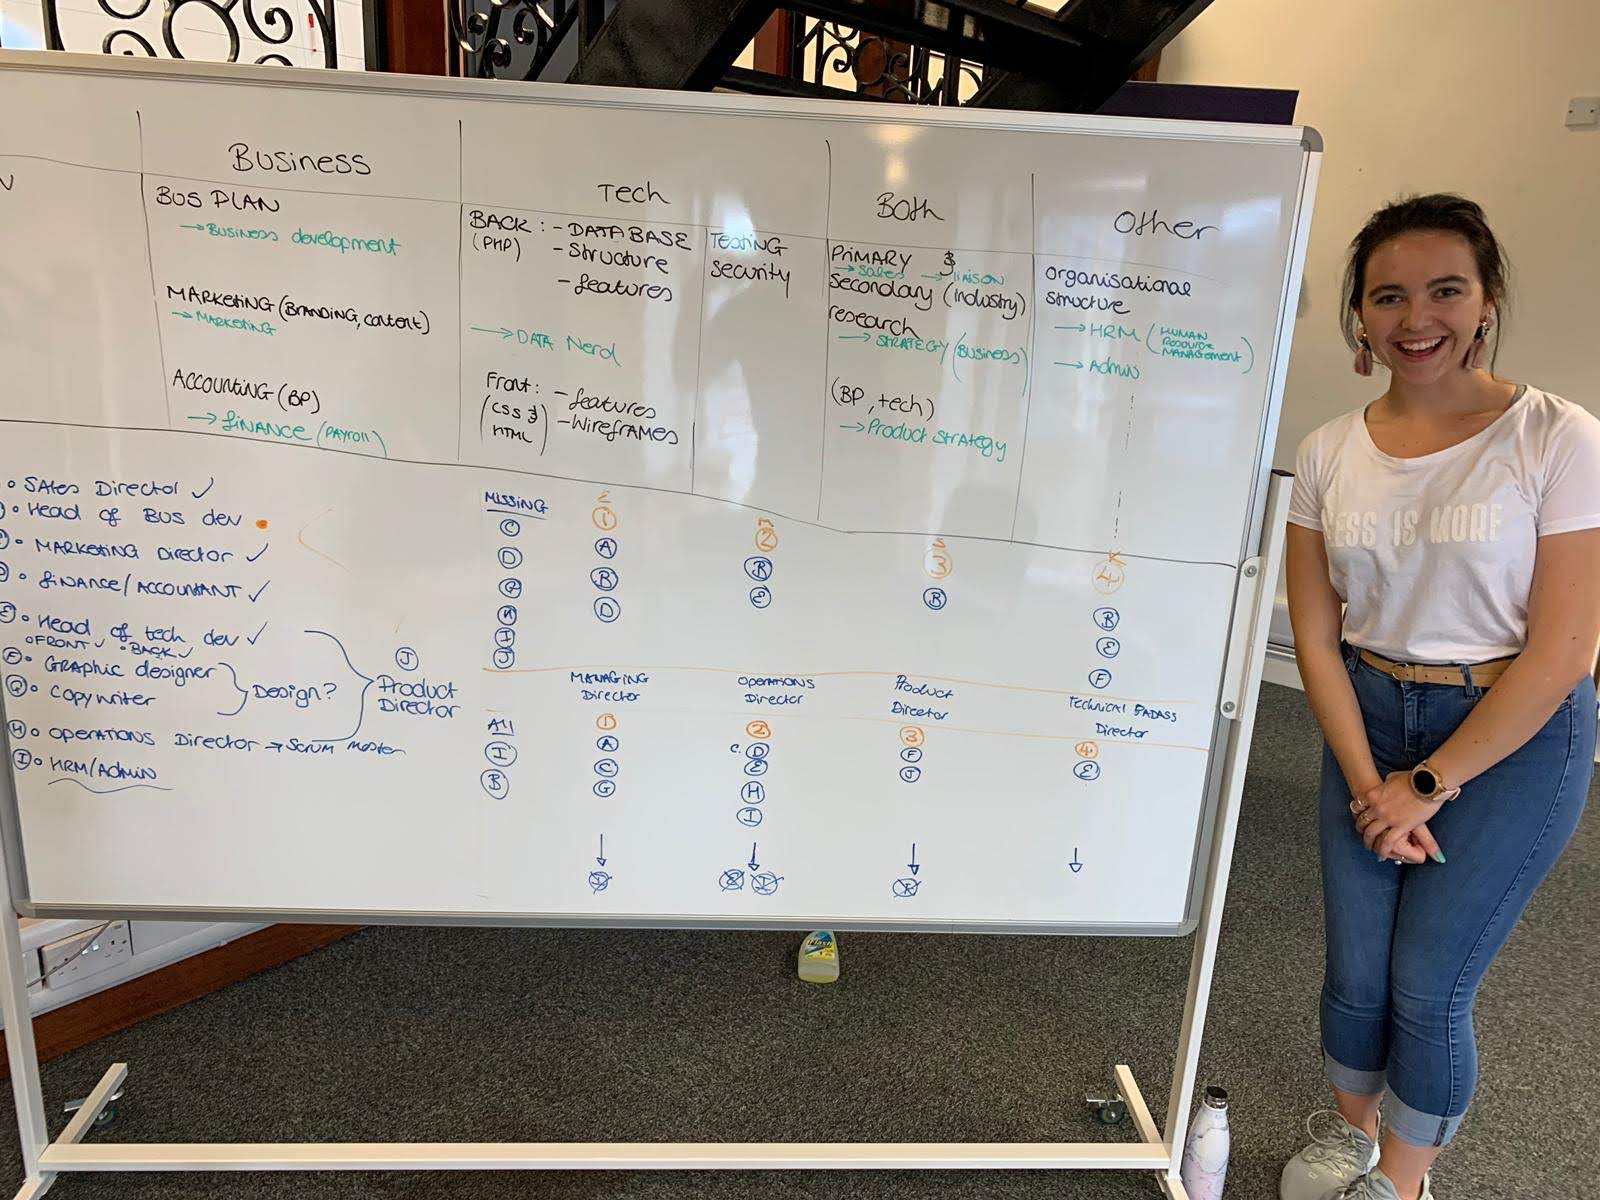 Business
Tech
Both
Other
BUS PLAN
→ Business development
MARKETING (BRANDING, content)
→ MARKETING
ACCOUNTING (BP)
→ FINANCE (PAYROLL)
BACK : - DATABASE
(PHP) - Structure
- features
→ DATA Nerd
Front : - features
(CSS & HTML) - Wireframes
TESTING
security
PRIMARY &
→ Sales → liaison
Secondary (industry)
research
→ STRATEGY (BUSINESS)
(BP, tech)
→ Product strategy
Organisational
structure
→ HRM (HUMAN RESOURCE MANAGEMENT)
→ Admin
• SALES Director ✓
• Head of BUS dev
• MARKETING Director ✓
• FINANCE/ACCOUNTANT ✓
E • Head of tech dev ✓
• FRONT ✓ • BACK ✓
F • GRAPHIC designer
G • Copywriter
Design?
H • OPERATIONS Director → Scrum master
I • HRM/Admin
J
Product
Director
MISSING
C
D
G
H
I
J
1
A
B
D
2
B
E
3
B
4
B
E
F
MANAGING
Director
OPERATIONS
Director
Product
Director
TECHNICAL BADASS
Director
All
I
B
1
A
C
G
2
C. D
E
H
I
3
F
J
4
E
LESS IS MORE
Flash